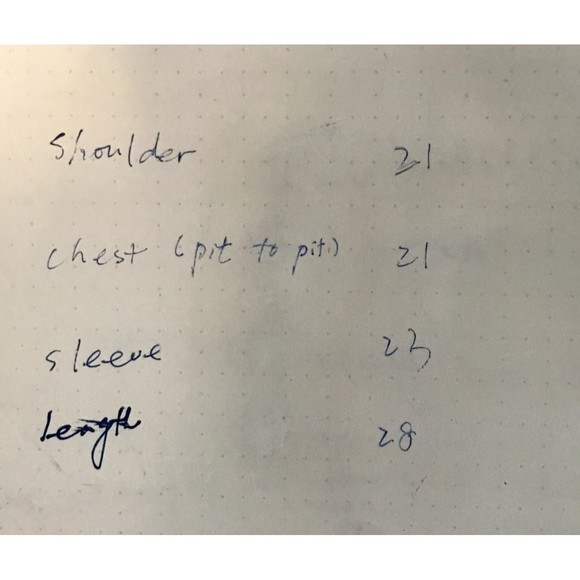 shoulder 21
chest (pit to pit) 21
sleeve 23
Length 28